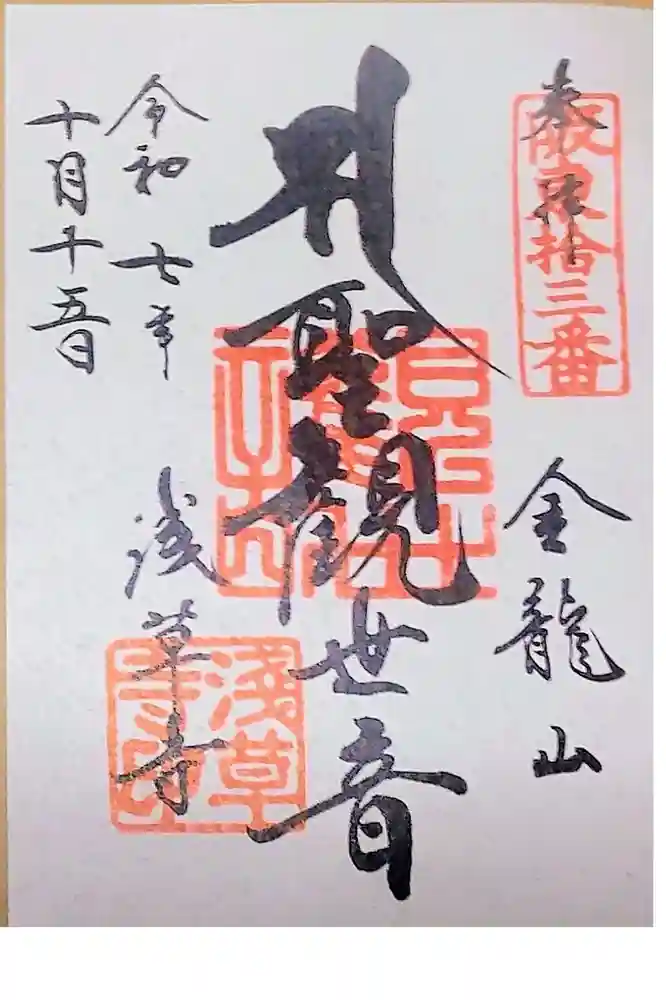 奉拝
坂東拾三番
金龍山
聖観世音
浅草寺
令和七年
十月十五日
浅草寺印